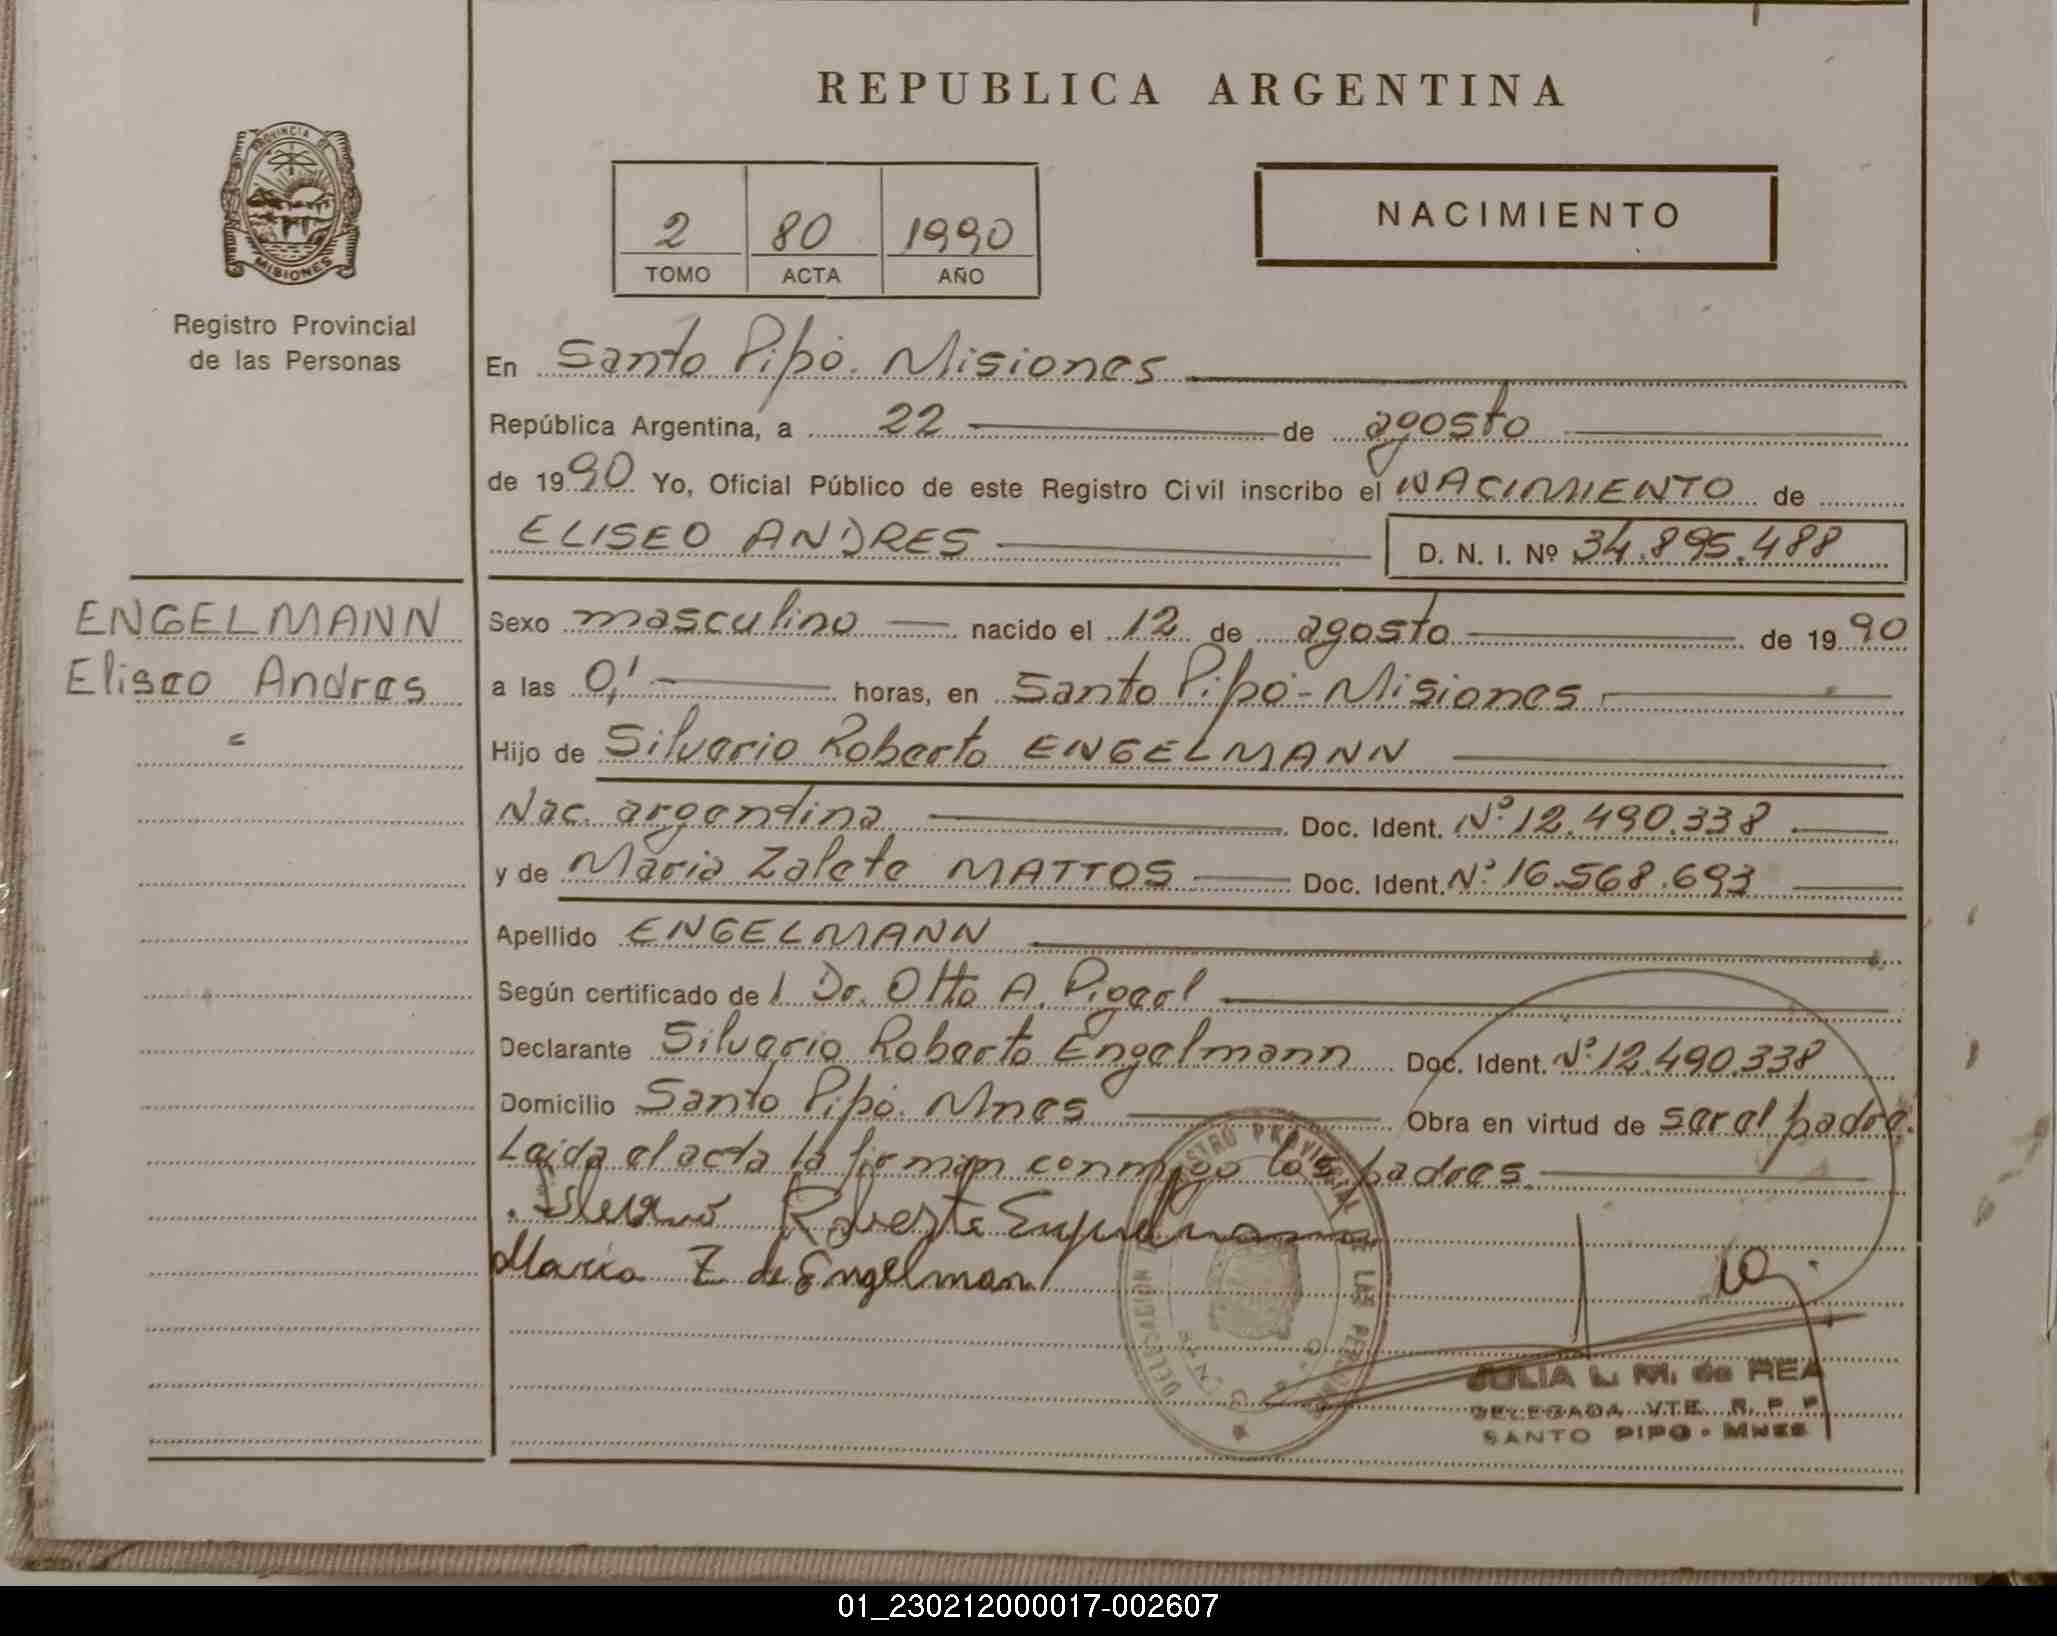 REPUBLICA ARGENTINA
PROVINCIA DE
MISIONES
Registro Provincial
de las Personas
2 80 1990
TOMO ACTA AÑO
NACIMIENTO
En Santo Pipó. Misiones
República Argentina, a 22 de agosto
de 1990 Yo, Oficial Público de este Registro Civil inscribo el NACIMIENTO de
ELISEO ANDRES D. N. I. Nº 34.895.488
ENGELMANN
Eliseo Andres
Sexo masculino nacido el 12 de agosto de 1990
a las 0,' horas, en Santo Pipó - Misiones
Hijo de Silverio Roberto ENGELMANN
Nac. argentina Doc. Ident. Nº 12.490.338
y de Maria Zalete MATTOS Doc. Ident. Nº 16.568.693
Apellido ENGELMANN
Según certificado de l Dr. Otto A. Pigerl
Declarante Silverio Roberto Engelmann Doc. Ident. Nº 12.490.338
Domicilio Santo Pipó. Mnes Obra en virtud de ser el padre.
Leida el acta la firman conmigo los padres.
Silverio Roberto Engelmann
Maria Z de Engelman
DELEGACION REGISTRO PROVINCIAL DE LAS PERSONAS
JULIA L. M. de REA
DELEGADA VTE. R. P. P.
SANTO PIPO - MNES
01_230212000017-002607